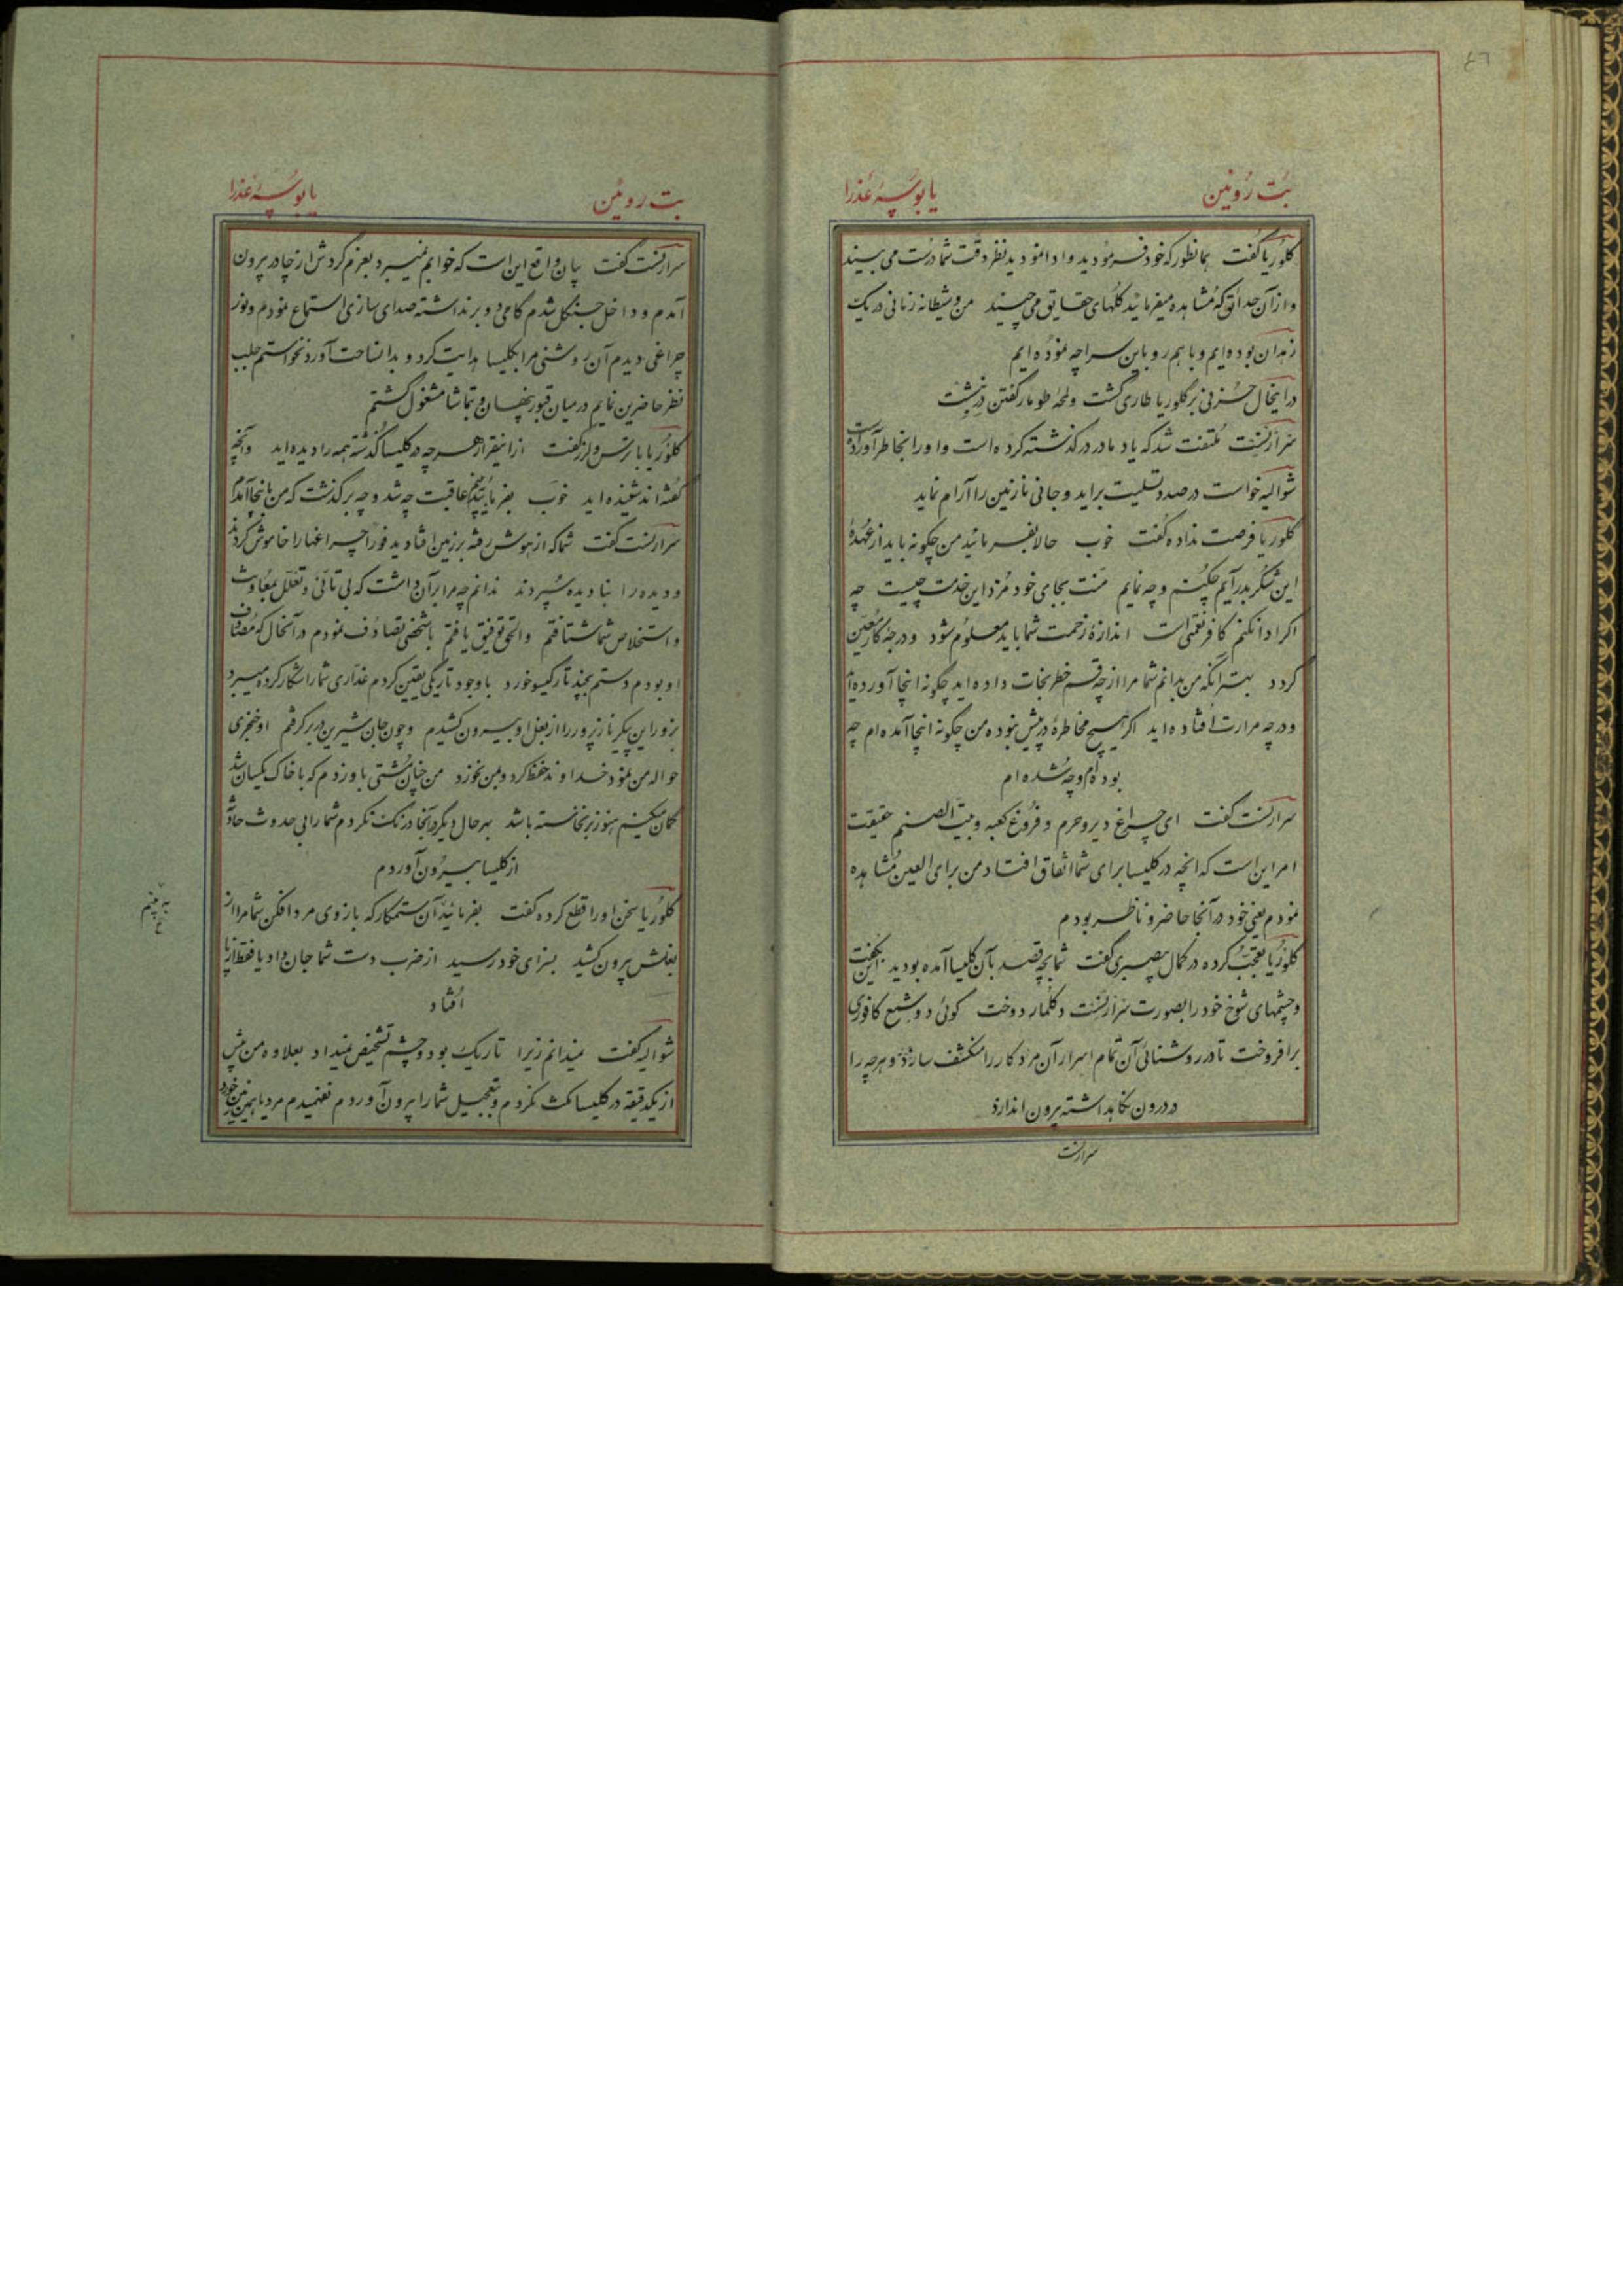 ٤٦
بُت رُوئین
یا بوسهٔ عَذرا
کلُوریا گفت همانطور که خود فرمُودید وادا نمودید نظر دقّت شما درُست می بیند
و از آن حدائق که مُشاهده میفرمائید گلهای حقایق می چیند من و شیطانه زنانی در یک
زندان بوده ایم و با هم رو باین سراچه نموُده ایم
در اینحال حُزنی بر گلوریا طاری گشت و لمحهٔ طومار گفتن در نبشت
سَر ارنِست مُلتفت شد که یاد مادر در گذشته کرده است و او را بخاطر آورده است
شوالیه خواست در صدد تسلیت براید و جانی نازنین را آرام نماید
گلوریا فرصت نداده گفت خوب حالا بفرمائید من چگونه باید از عُهدهٔ
این شکر بدر آیم چکنم و چه نمایم منّت بجای خود مُزد این خدمت چیست چه
اگر ادا نکنم کافر نعمتی است اندازهٔ زحمت شما باید معلوُم شود و درجهٔ کار معیّن
گردد بهتر آنکه من بدانم شما مرا از چه قسم خطر نجات داده اید چگونه اینجا آورده اید
و در چه مرارت اُفتاده اید اگر هیچ مخاطرهٔ در پیش نبوده من چگونه اینجا آمده ام چه
بوده ام و چه شُده ام
سر ارنست گفت ای چراغ دیر و حرم و فرُوغ کعبه و بیت الصنم حقیقت
امر این است که انچه در کلیسا برای شما اتفاق افتاد من برای العین مُشاهده
نمودم یعنی خود در آنجا حاضر و ناظر بودم
گلوُریا تعجّب کرده در کمال بیصبری گفت شما بچه قصد بآن کلیسا آمده بودید این بگفت
و چشمهای شوخ خود را بصورت سَر ارنِست دکلمار دوخت گوئی دو شمع کافوری
بر افروخت تا در روشنائی آن تمام اسرار آن مرد کار را منکشف سازد و هر چه را
در درون نگاهداشته بیرون اندازد
سر ارنست
بت روئین
یا بوسهٔ عذرا
سر ارنست گفت بیان واقع این است که خوابم نمیبرد بعزم گردش از چادر بیرون
آمدم و داخل جنگل شدم گامی دو بر نداشته صدای سازی استماع نمودم و نور
چراغی دیدم آن روشنی مرا بکلیسا هدایت کرد و بدانساحت آورد نخواستم جلب
نظر حاضرین نمایم در میان قبور پنهان و بتماشا مشغول گشتم
گلوُریا با ترس و لرز گفت از اینقرار هر چه در کلیسا گُذشته همه را دیده اید و آنچه
گفته اند شنیده اید خوب بفرمائید عاقبت چه شد و چه بر گذشت که من باینجا آمدم
سر ارنست گفت شما که از هوش رفته بر زمین افتادید فوراً چراغها را خاموش کردند
و دیده را بنادیده سُپردند ندانم چه مرا بر آن داشت که بی تأنّی و تعلّل بمعاونت
و استخلاص شما شتافتم و الحق توفیق یافتم با شخصی تصادُف نمودم در آنحال که مُصادف
او بودم دستم بچند تار گیسو خورد با وجود تاریکی یقین کردم غدّاری شما را شکار کرده میبرد
بزور این پیکر نازپرور را از بغل او بیرون کشیدم و چون جان شیرین در بر گرفتم او خنجری
حوالهٔ من نمود خداوند حفظ کرد و بمن نخورد من چنان مُشتی باو زدم که با خاک یکسان شد
گمان میکنم هنوز بر نخاسته باشد بهر حال دیگر در آنجا درنگ نکردم شما را بی حدوث حادثهٔ
از کلیسا بیرُون آوردم
گلوُریا سخن او را قطع کرده گفت بفرمائید آن ستمکار که بازوی مرد افکن شما مرا از
بغلش بیرون کشید بسزای خود رسید از ضرب دست شما جان داد یا فقط از پا
اُفتاد
شوالیه گفت نمیدانم زیرا تاریک بود و چشم تشخیص نمیداد بعلاوه من بیش
از یکدقیقه در کلیسا مکث نکردم و بتعجیل شما را بیرون آوردم نفهمیدم مرد یا